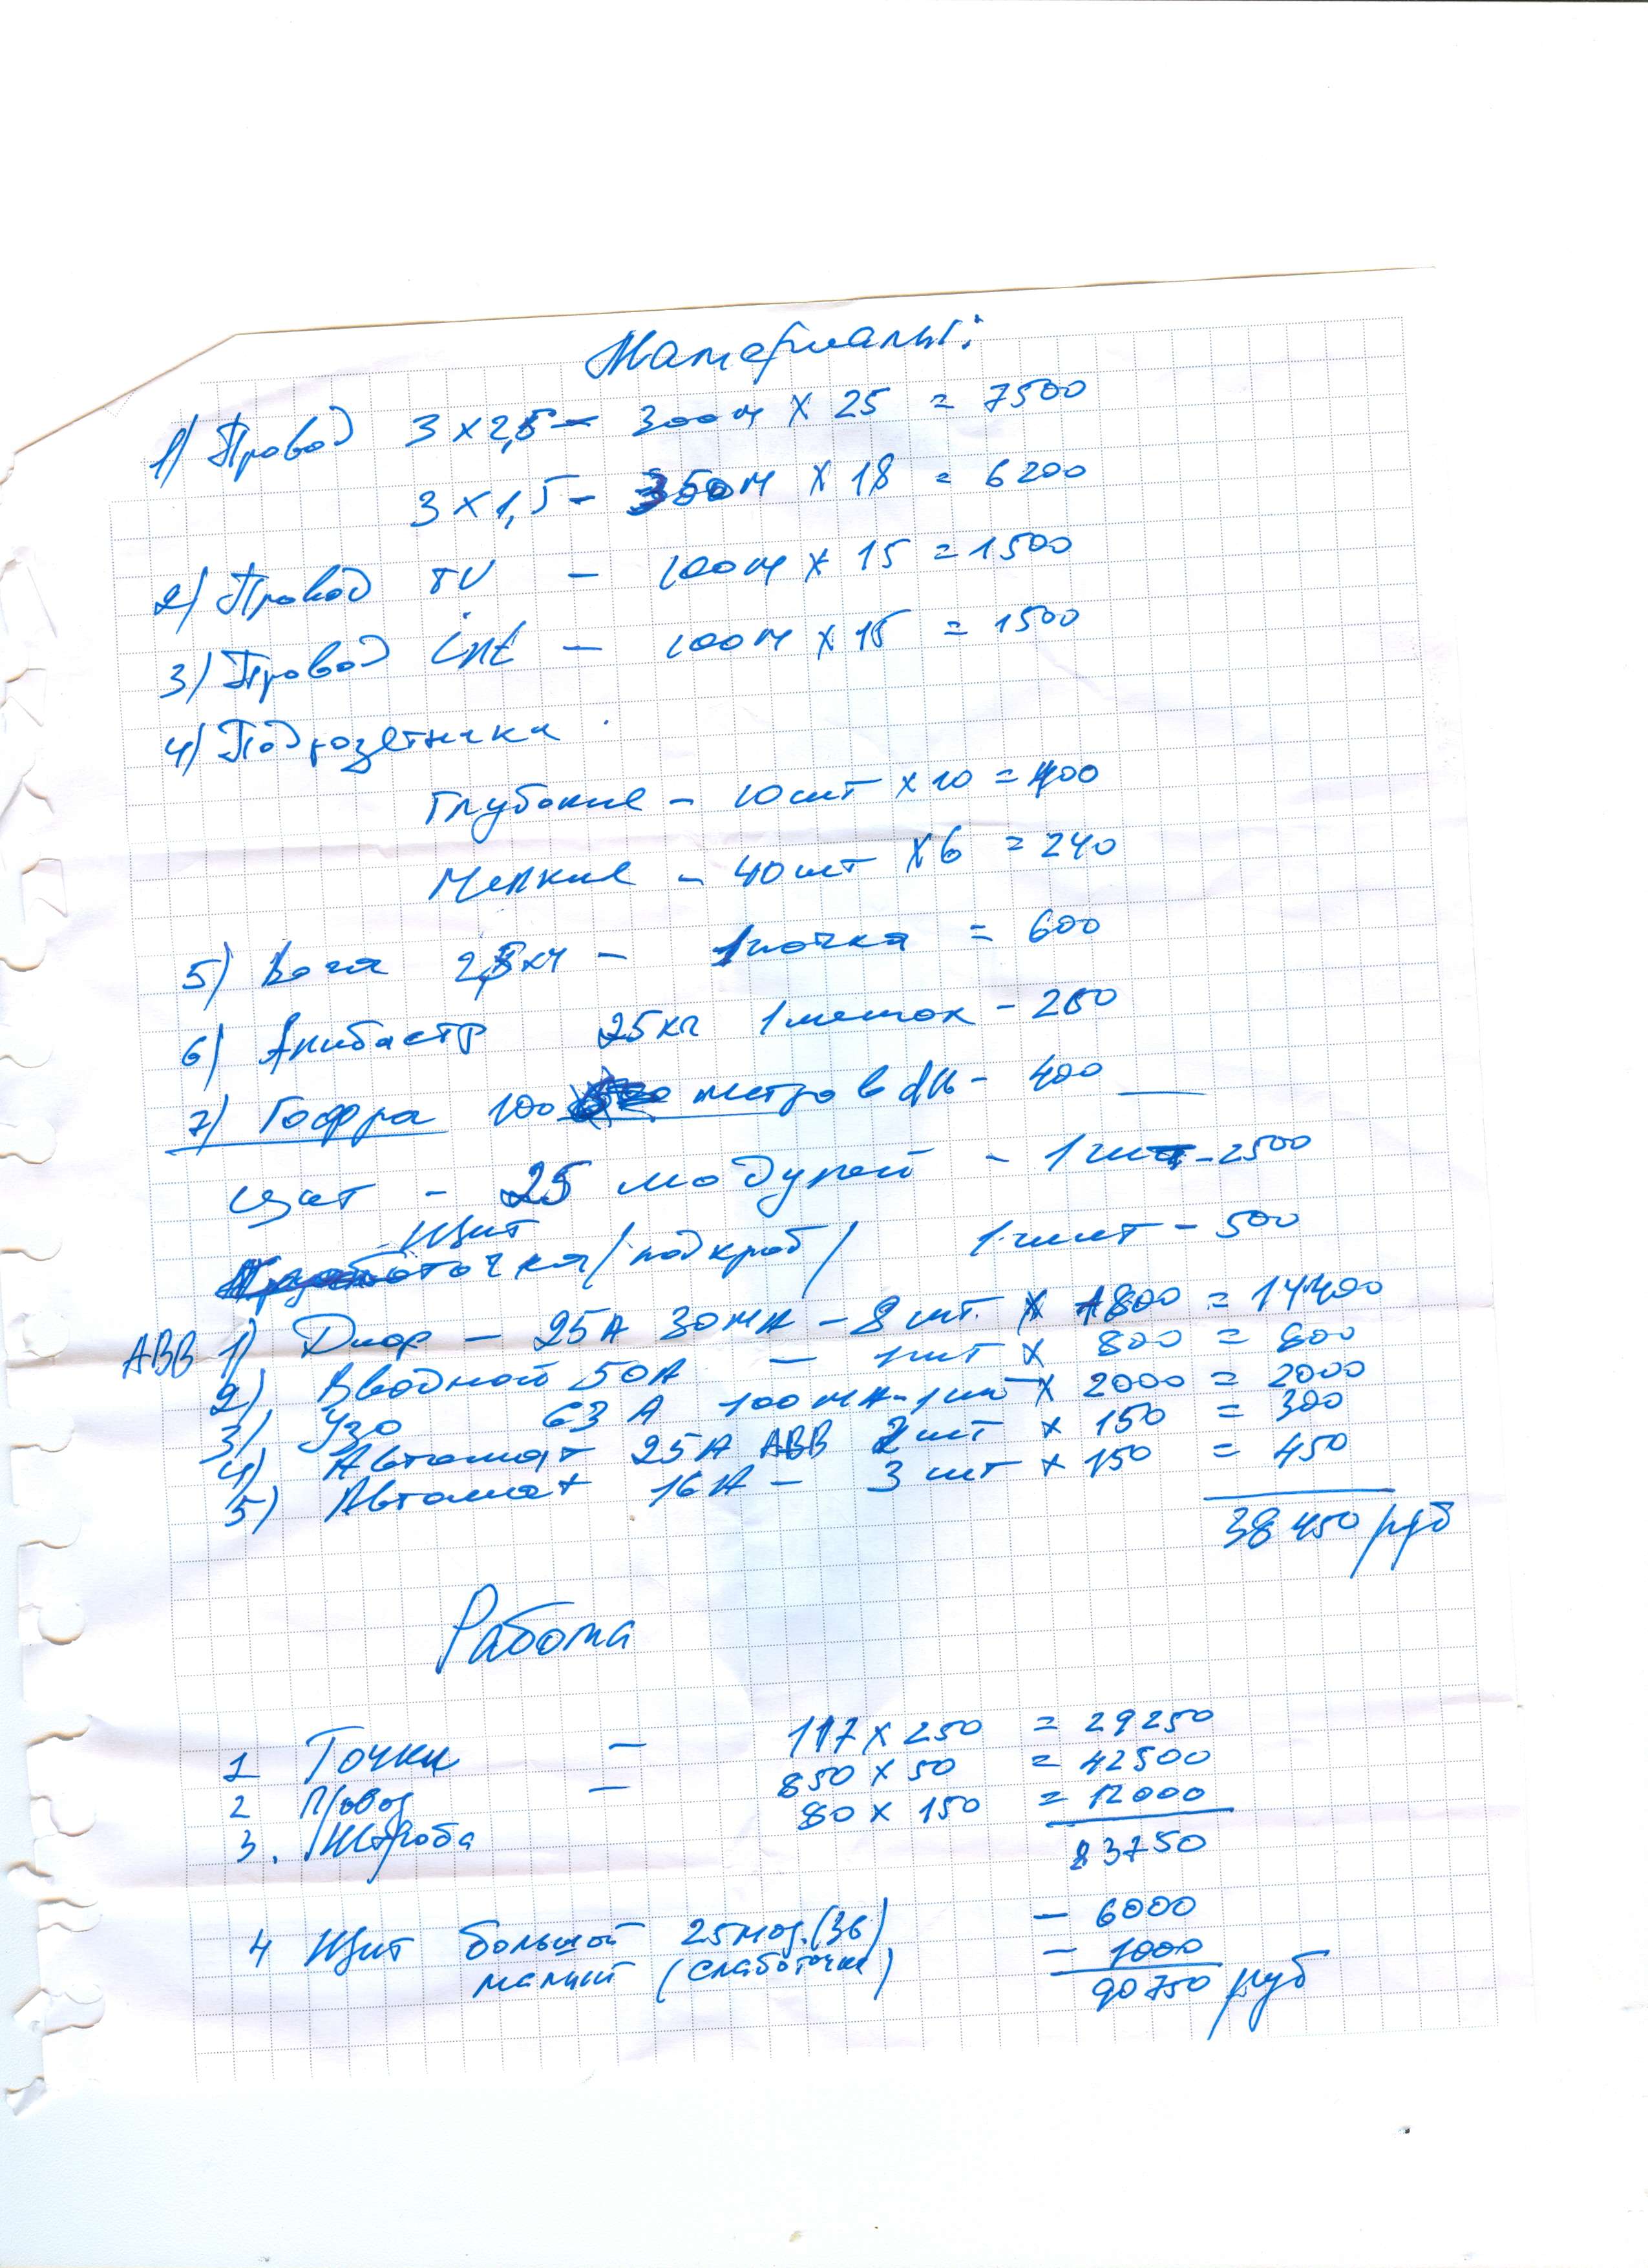 Материалы:
1) Провод 3 x 2,5 - 300м x 25 = 7500
3 x 1,5 - 350м x 18 = 6200
2) Провод TV - 100м x 15 = 1500
3) Провод int - 100м x 15 = 1500
4) Подрозетники
Глубокие - 10шт x 10 = 100
Мелкие - 40шт x 6 = 240
5) Вага - 1 пачка = 600
6) Алибастр 25кг 1 мешок - 250
7) Гофра 100 метров - 400
Щит - 25 модулей - 1 шт - 2500
Щит
точка /под краб/ 1 шт - 500
ABB 1) Диф - 25А 30мА - 8 шт. x 1800 = 14400
2) Вводной 50А - 1шт x 800 = 800
3) Узо 63 А 100мА - 1шт x 2000 = 2000
4) Автомат 25А ABB 2шт x 150 = 300
5) Автомат 16А - 3 шт x 150 = 450
38450 руб
Работа
1 Точки - 117 x 250 = 29250
2 Провод - 850 x 50 = 42500
3. Штроба 80 x 150 = 12000
83750
4 Щит большой 25мод. (36) - 6000
малый (слаботочка) - 1000
90750 руб